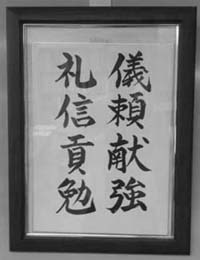 礼儀
信頼
貢献
勉強